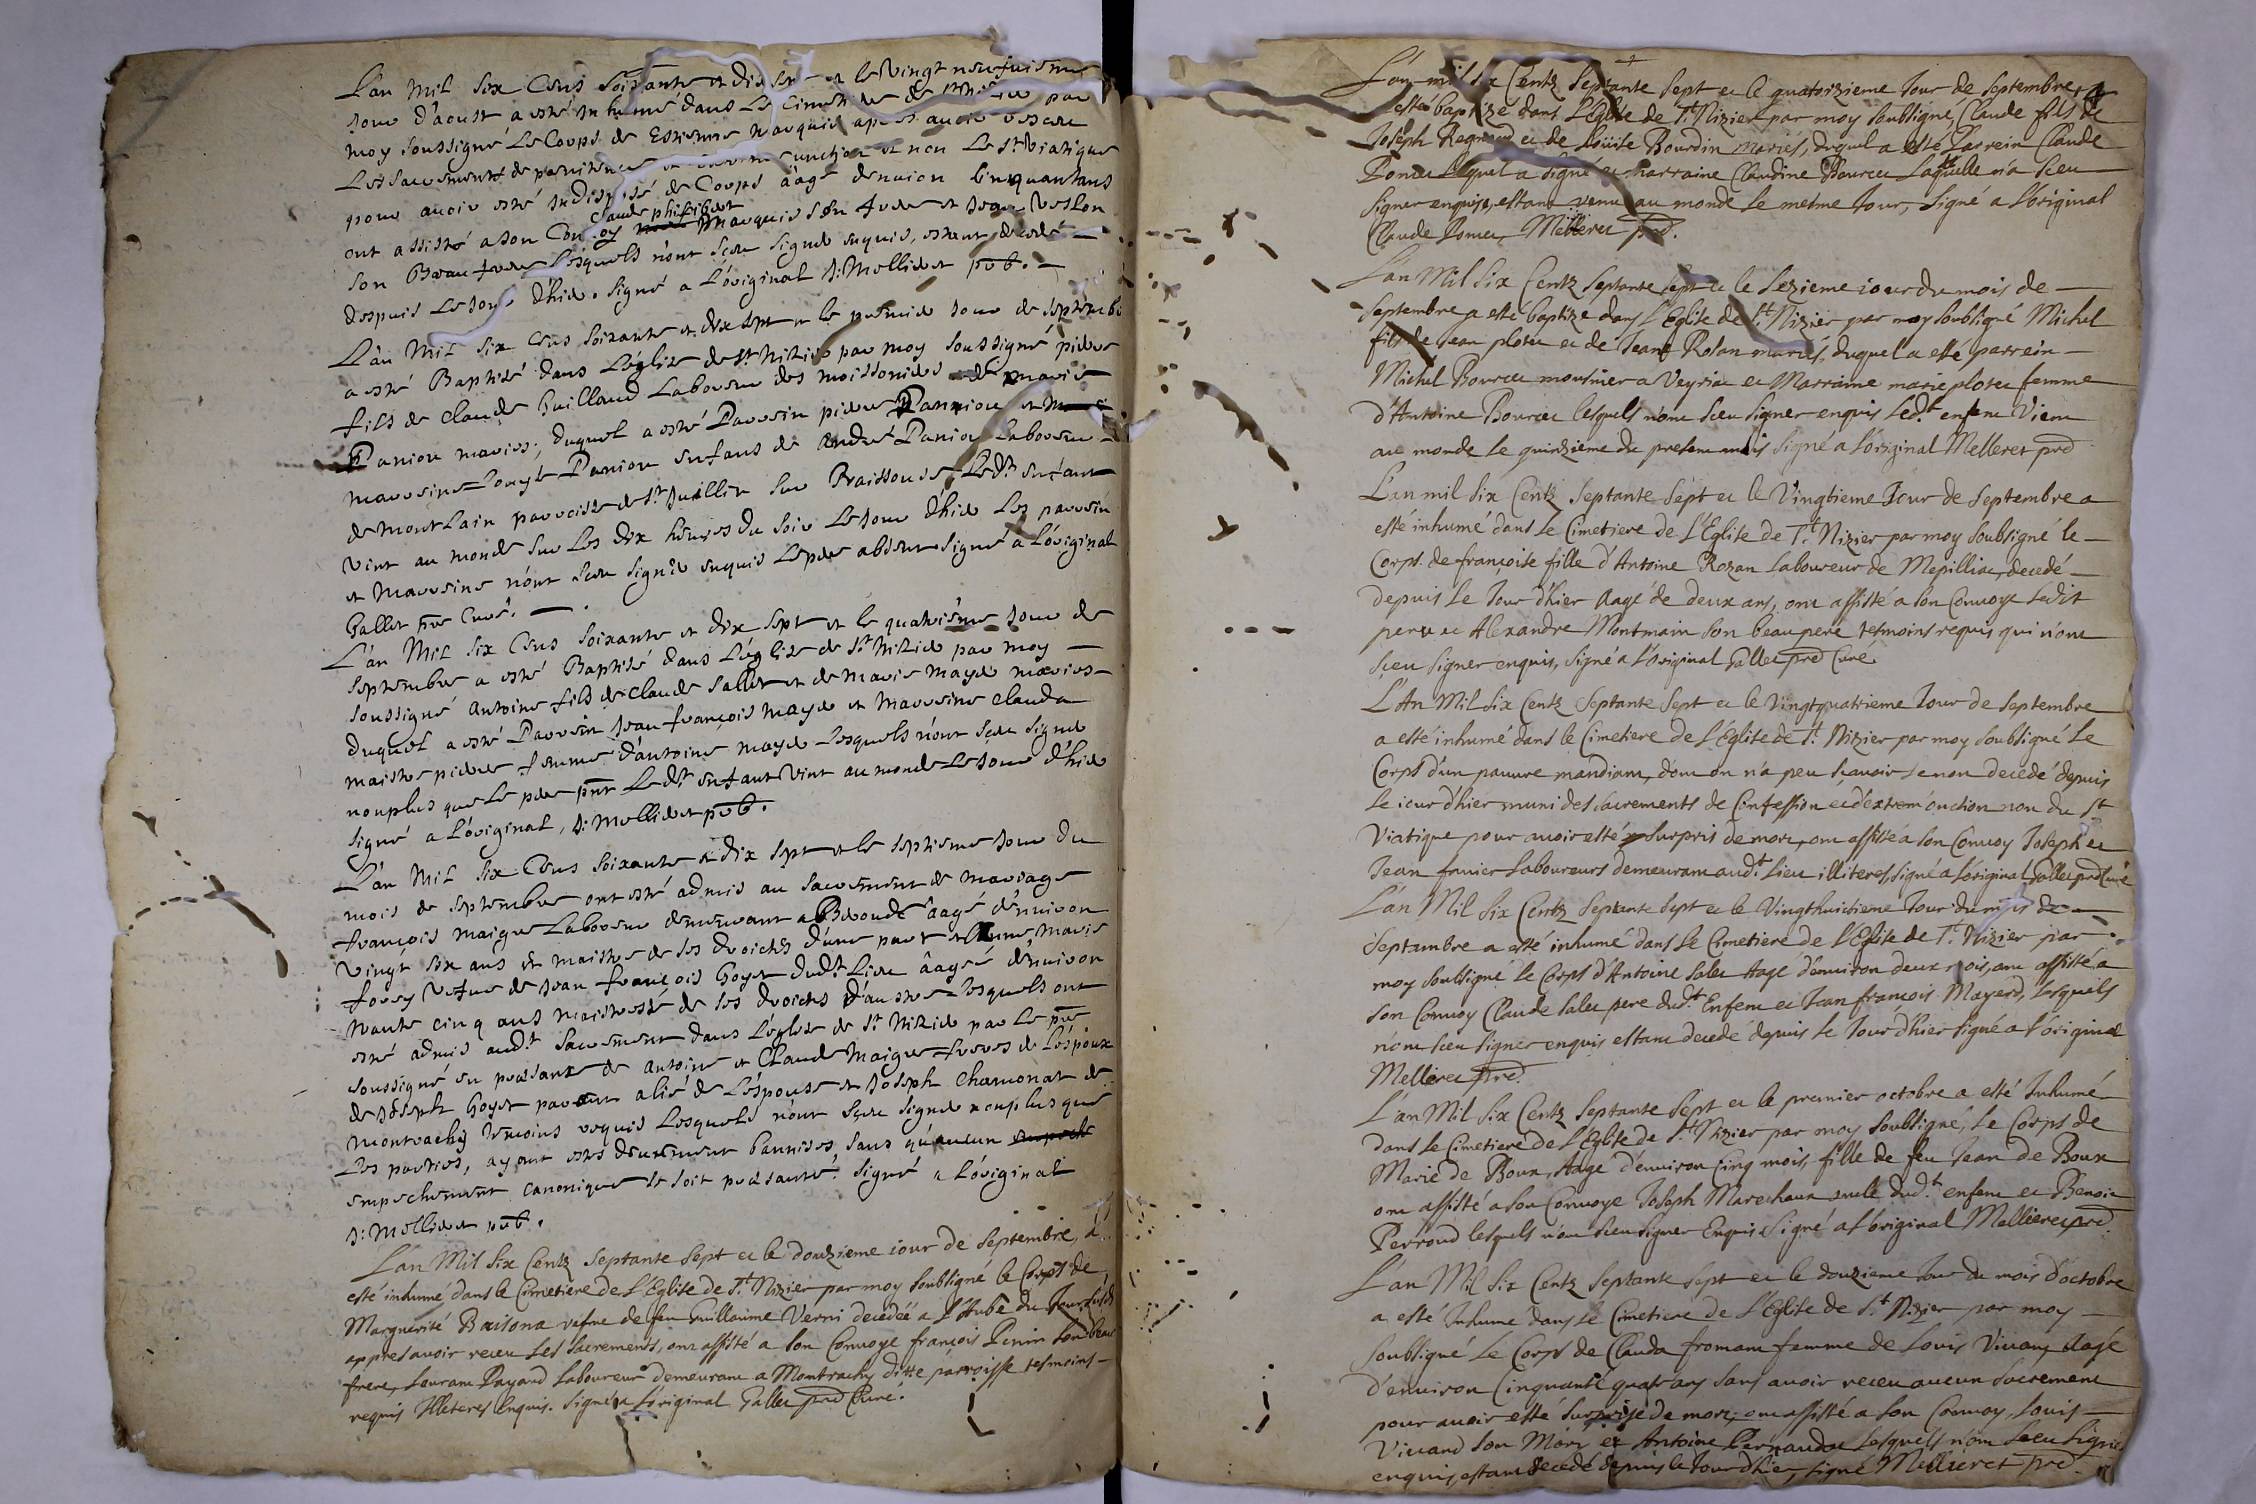 L'an Mil Six Cens Soixante et dix sept et le vingt neufuiesme
Jour d'aoust a esté Inhumé dans Le Cimetière de St Nizier par
moy soussigné Le Corps de Estienne Marquis apres auoir receu
Les sacrements de penitence et extreme onction et non Le St Viatique
pour auoir esté Indisposé de Corps aagé denuiron Cinquantans
ont assisté a son Conuoy Claude philibert Marquis son frere et Jean Veslon
son Beau frere Lesquels n'ont sceu signer enquis, estant decedé
despuis Le Jour d'hier. signé a L'original S: Mellieret pbt.
L'an Mil Six Cens Soixante et dix sept et le premier Jour de septembre
a esté Baptisé dans L'église de St Nizier par moy soussigné pierre
fils de Claude Guilland Laboureur des moissoniers et de marie
Paniou mariés, duquel a esté Parrein pierre Panniou et
marreine Paniou enfans de André Paniou Laboureur
de Montlain parroisse de St Jullien sur Raissouse, Ledt enfant
vint au monde sur Les dix heures du soir Le Jour d'hier Les parrein
et Marreine n'ont sceu signer enquis Le pere absent signé a L'original
Gallet pre Curé.
L'an Mil Six Cens Soixante et dix sept et le quatriesme Jour de
septembre a esté Baptisé dans L'église de St Nizier par moy
soussigné Antoine fils de Claude Sallet et de Marie Mayer mariés
duquel a esté Parrein Jean françois Mayer et Marreine Clauda
maistre pierre femme d'antoine mayer Lesquels n'ont sceu signer
nonplus que Le pere pnt Ledt enfant vint au monde Le Jour d'hier
signé a L'original, S: Mellieret pbt.
L'an Mil Six Cens Soixante et dix sept et le septiesme Jour du
mois de septembre ont esté admis au sacrement de mariage
françois Maigre Laboureur demeurant a aagé d'enuiron
vingt six ans et maistre de ses droicts d'une part et Marie
Forey vefue de Jean françois Goyet dudt Lieu aagée d'enuiron
trante cinq ans maistresse de ses droicts d'autre Lesquels ont
esté admis audt sacrement dans L'église de St Nizier par Le pre
soussigné en presence de Antoine et Claude Maigre freres de L'époux
de Joseph Goyet parent alié de L'épouse et Joseph Chamonat de
Montrachy témoins requis Lesquels n'ont sceu signer nonplus que
Les parties, ayant estés deuëment bannies, sans qu'aucun
empechement canonique se soit presanté. signé a L'original
S: Mellieret pbt.
L'an Mil Six Centz Septante Sept et le douzieme iour de Septembre, a
esté inhumé dans le Cimetiere de L'Eglise de St. Nizier par moy soubsigné le Corps de
Marguerite Baisona vefue de feu Guillaume Verni decedée a L'Aube du Jour susdt
appres auoir receu Les Sacrements, ont assisté a son Conuoye françois Penin son beau
frere, Laurant Payand Laboureur demeurant a Montrachy ditte parroisse tesmoins
requis Illeteres Enquis. Signé a L'original Gallet pred Curé.
L'an mil six Centz Septante Sept et le quatorizieme Jour de Septembre a
esté baptizé dans L'Eglise de St. Nizier par moy Soubsigné, Claude fils de
Joseph Ragnaud et de Loüise Bourdin mariés, duquel a esté Parrein Claude
Ponter Lequel a signé et Marraine Claudine Bourcet Laquelle n'a sceu
signer enquise, estant venu au monde le mesme Jour, Signé a L'original
Claude Ponter, Mellieret pred.
L'an Mil Six Centz Septante sept et le Sezieme iour du mois de
Septembre a esté baptize dans l'Eglise de St. Nizier par moy soubsigné Michel
fils de Jean ploter et de Jeane Rolan mariés, duquel a esté parrein
Michel Bourcet mousnier a Veyria et Marraine marie ploter femme
d'Antoine Bourcet lesquels n'ont sceu signer enquis Ledt. enfant Vient
au monde le quinzieme du present mois signé a L'original Melleret pred
L'an mil six Centz Septante Sept et le Vingtieme Jour de Septembre a
esté inhumé dans le Cimetiere de L'Eglise de St. Nizier par moy soubsigné le
Corps de françoise fille d'Antoine Rozan Laboureur de Mepilliat, decedé
depuis le Jour d'hier Aagé de deux ans, ont assisté a son Conuoye Ledit
pere et Alexandre Montmain son beaupere tesmoins requis qui n'ont
sceu signer enquis, signé a L'original Gallet pred Curé
L'An Mil Six Centz Septante Sept et le Vingtquatrieme Jour de Septembre
a esté inhumé dans le Cimetiere de L'Eglise de St. Nizier par moy soubsigné Le
Corps d'un pauure mandiant, dont on n'a peu scauoir le non decedé depuis
le iour d'hier muni des Sacrements de Confession et d'extrem'onction non du St
Viatique pour auoir esté surpris de mort, ont assisté a son Conuoy Joseph et
Jean funier Laboureurs demeurant audt. Lieu illiteres, signé a L'original Gallet pred Curé
L'an Mil Six Centz Septante Sept et le Vingthuictieme Jour du mois de
Septembre a esté inhumé dans le Cimetiere de l'Eglise de St. Nizier par
moy soubsigné le Corps d'Antoine Salet Aagé d'enuiron deux mois, ont assisté a
son Conuoy Claude Salet pere dudt. Enfent et Jean francois Mayerd, Lesquels
n'ont sceu signer enquis estant decedé depuis le Jour d'hier signé a L'original
Melleret pred.
L'an Mil Six Centz Septante Sept et le premier octobre a esté Inhumé
dans le Cimetiere de L'Eglise de St. Nizier par moy soubsigné, Le Corps de
Marie de Boux, Aagé d'enuiron Cinq mois, fille de feu Jean de Boux
ont assisté a son Conuoye Joseph Marechaux oncle dudt. enfent et Benoit
Perroud lesquels n'ont sceu signer Enquis Signé a L'original Mellieret pred.
L'an Mil Six Centz Septante Sept et le douzieme Jour du mois d'octobre
a esté Inhume dans le Cimetiere de L'Eglise de St. Nizier par moy
Soubsigné Le Corps de Clauda fromant femme de Louis Viuant, Aagé
d'enuiron Cinquante quatr'ans sans auoir receu aucun Sacrement
pour auoir esté surprise de mort, ont assisté a son Conuoy, Louis
Viuand son Mary et Antoine Pernaudat Lesquels n'ont sceu signer
enquis, estant decedé depuis le Jour d'hier, signé Mellieret pred.